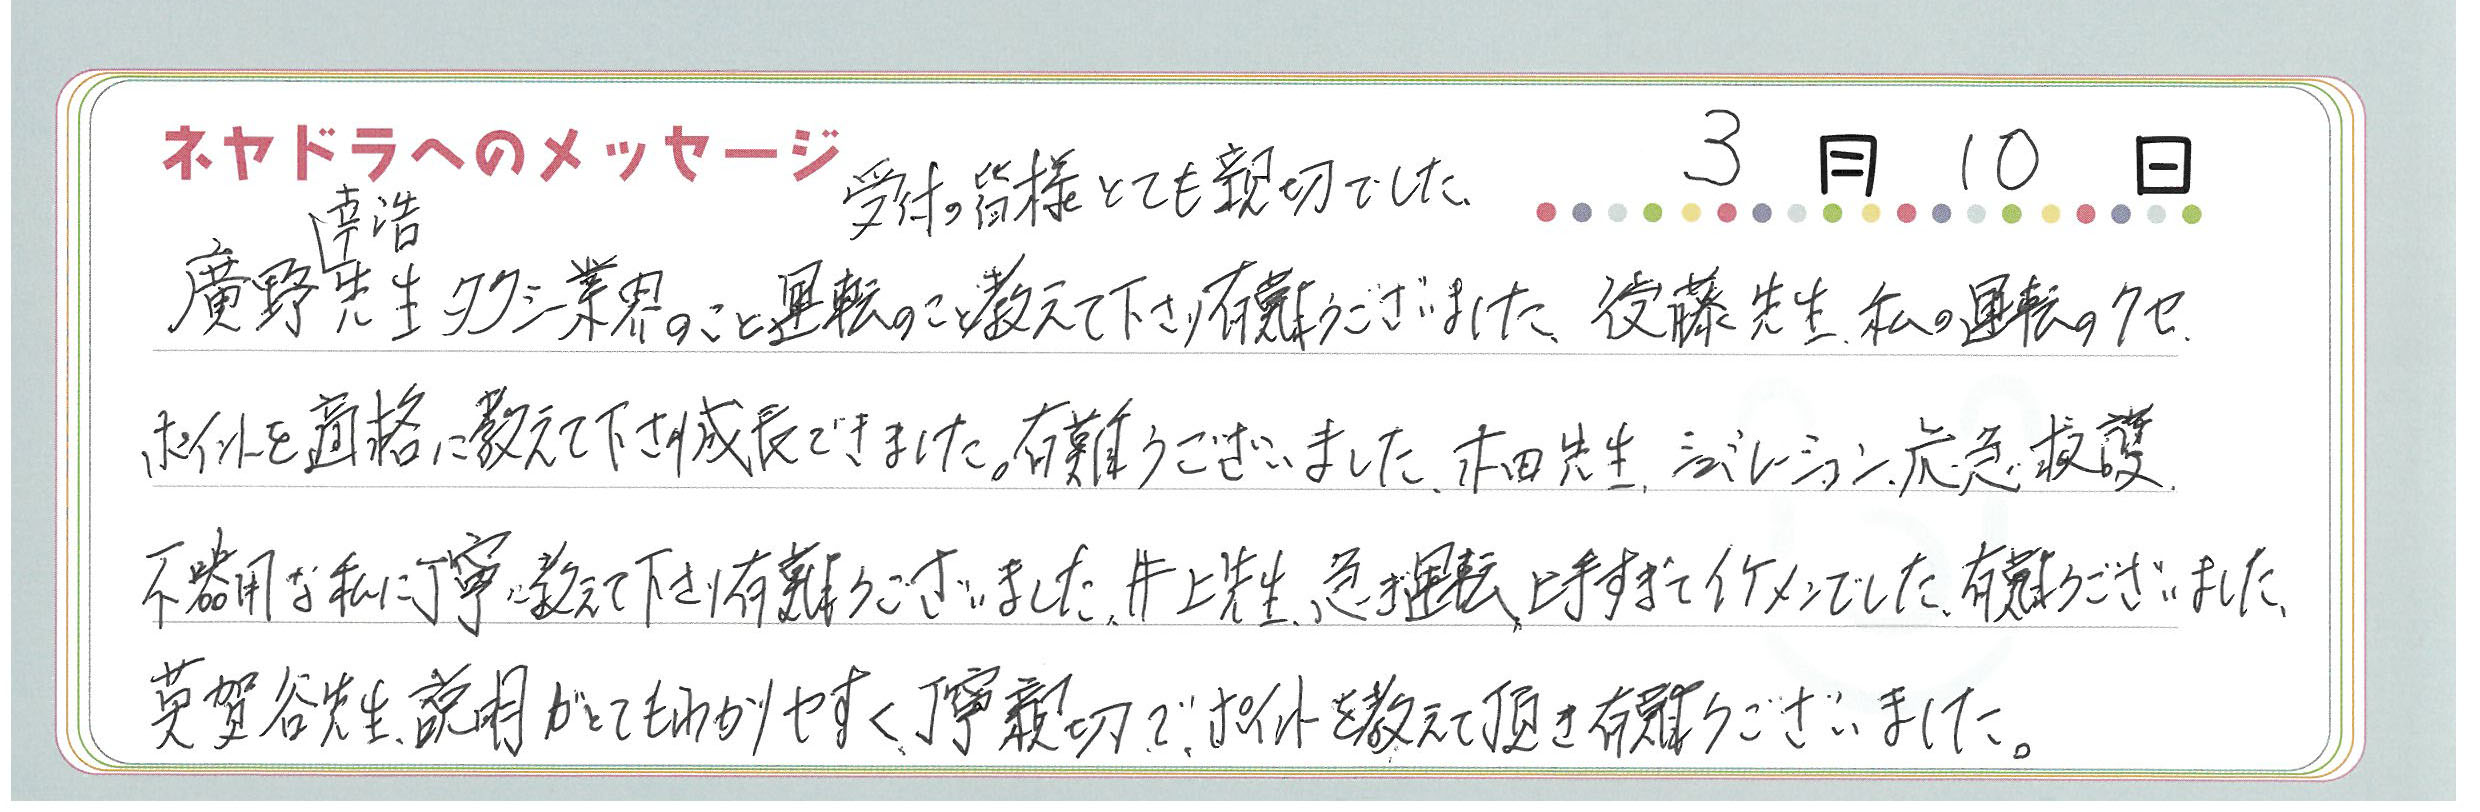 ネヤドラへのメッセージ
3月10日
受付の皆様とても親切でした、
幸浩
廣野先生タクシー業界のこと、運転のこと教えて下さり有難うございました、後藤先生、私の運転のクセ、
ポイントを適格に教えて下さり成長できました。有難うございました、木田先生、シュミレーション、応急救護、
不器用な私に丁寧に教えて下さり有難うございました、井上先生、急ぎ運転、上手すぎてイケメンでした、有難うございました、
英賀谷先生、説明がとてもわかりやすく、丁寧親切で、ポイントを教えて頂き有難うございました。